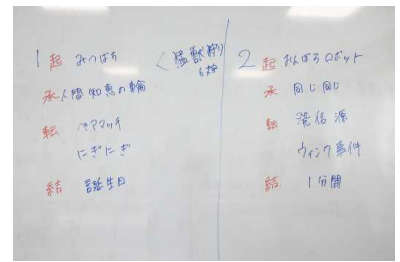 1 起 みつばち
承 人間知恵の輪
転 ペアマッチ
にぎにぎ
結 誕生日
< 猛獣狩り
2 起 おんぼろロボット
承 同じ同じ
転 発信源
ウィンク事件
結 1分間